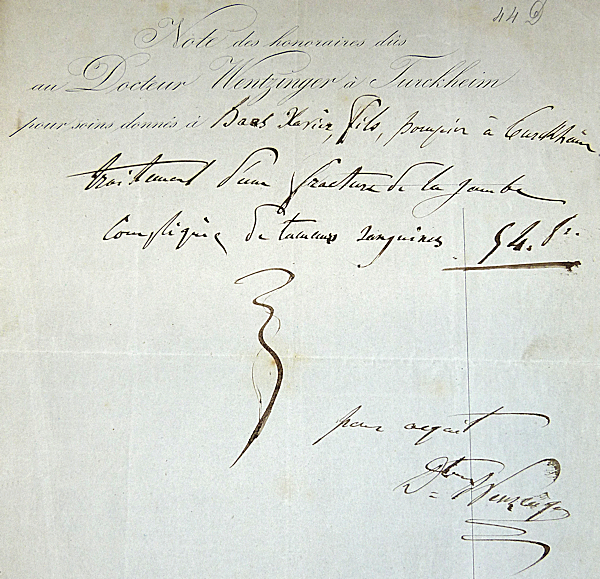 44 D
Note des honoraires dûs
au Docteur Wentzinger à Turckheim
pour soins donnés à Baas Xavier, fils, pompier à Turckheim
traitement d'une fracture de la jambe
compliquée de tumeurs sanguines 54. fr.
pour acquit
Dr Wentzinger